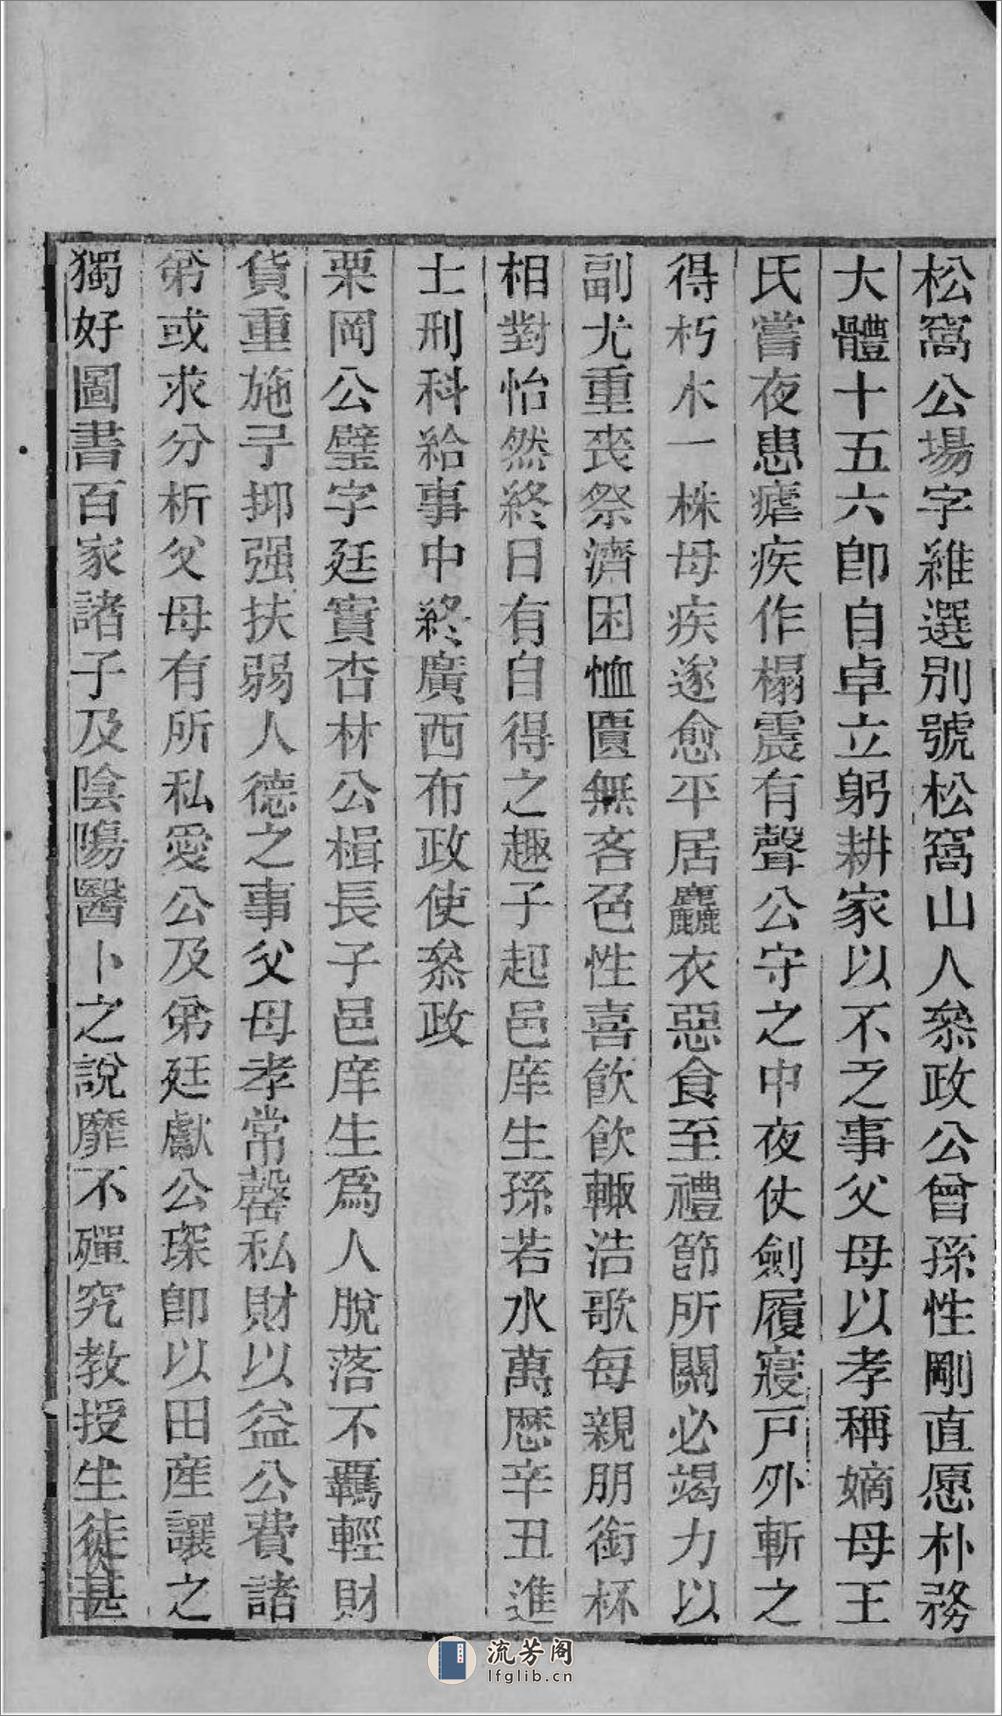 松窩公場字維選別號松窩山人叅政公曾孫性剛直愿朴務
大體十五六卽自卓立躬耕家以不乏事父母以孝稱嫡母王
氏嘗夜患瘧疾作榻震有聲公守之中夜仗劍履寢戸外斬之
得朽木一株母疾遂愈平居麤衣惡食至禮節所關必竭力以
副尤重丧祭濟困恤匱無吝色性喜飮飮輙浩歌每親朋銜杯
相對怡然終日有自得之趣子起邑庠生孫若水萬歷辛丑進
士刑科給事中終廣西布政使叅政
栗岡公璧字廷寳杏林公楫長子邑庠生爲人脫落不羈輕財
貨重施予抑强扶弱人德之事父母孝常罄私財以益公費諸
弟或求分析父母有所私愛公及弟廷獻公琛卽以田産讓之
獨好圖書百家諸子及陰陽醫卜之說靡不殫究教授生徒甚
流芳阁
lfglib.cn